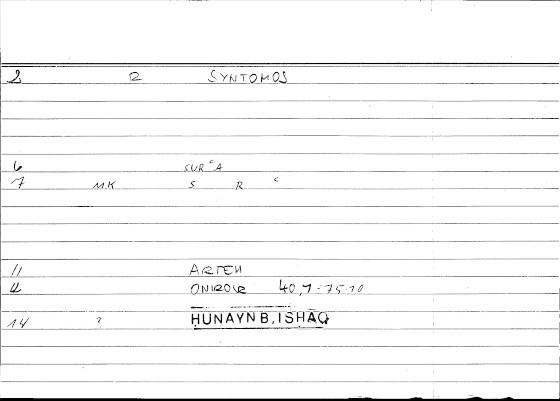 2 R SYNTOMOS
6 SURʿA
7 MK S R ʿ
11 ARTEM
12 ONIROCR 40,7-75.10
14 ? ḤUNAYN B. ISḤĀQ